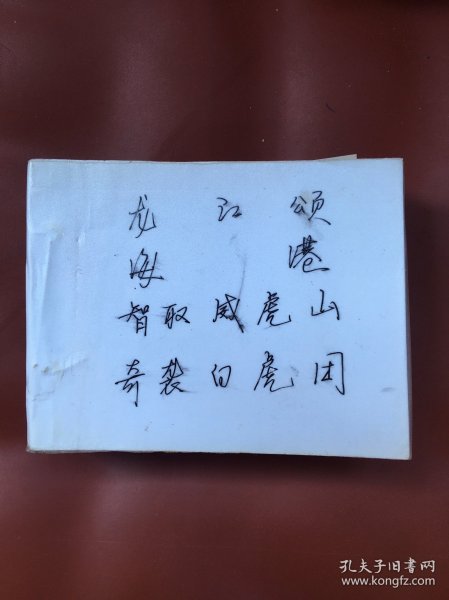 龙江颂
海港
智取威虎山
奇袭白虎团
孔夫子旧书网
www.kongfz.com